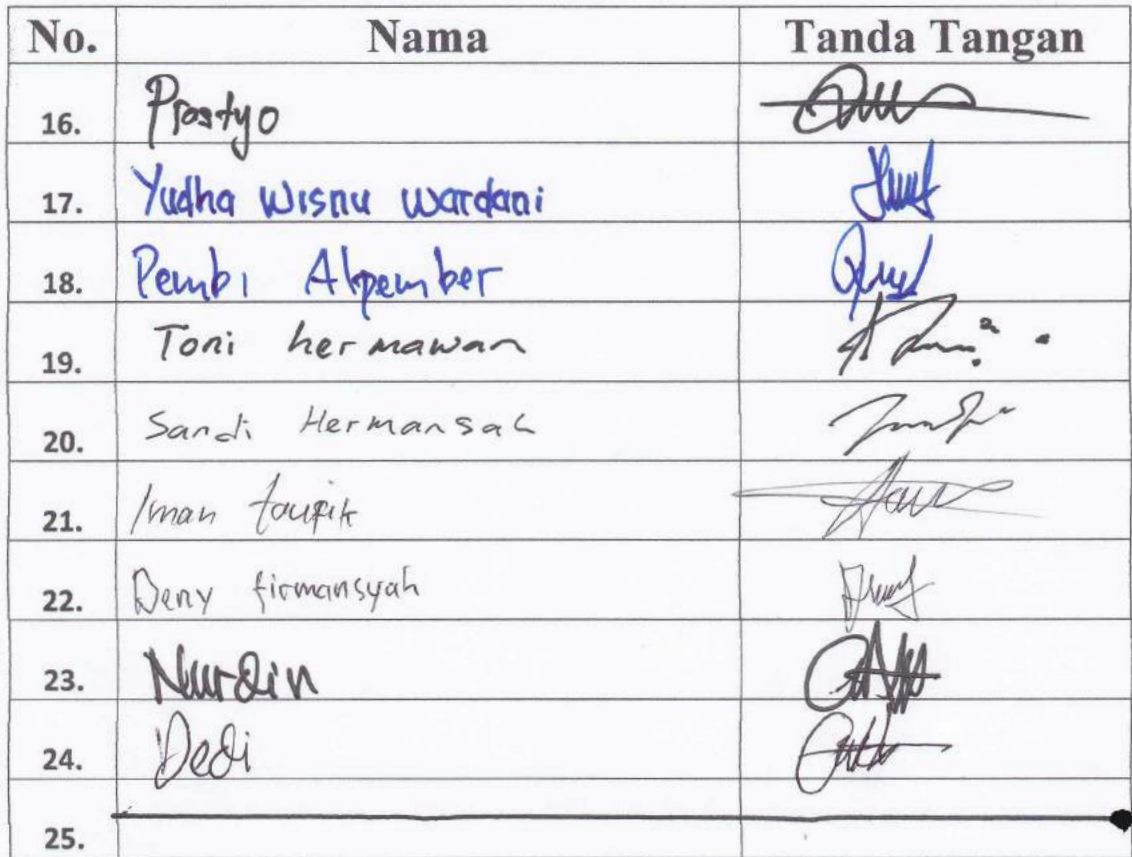 No. Nama Tanda Tangan
16. Prastyo
17. Yudha Wisnu Wardani
18. Pembi Alpember
19. Toni hermawan
20. Sandi Hermansah
21. Iman taufik
22. Deny firmansyah
23. Nurdin
24. Dedi
25.